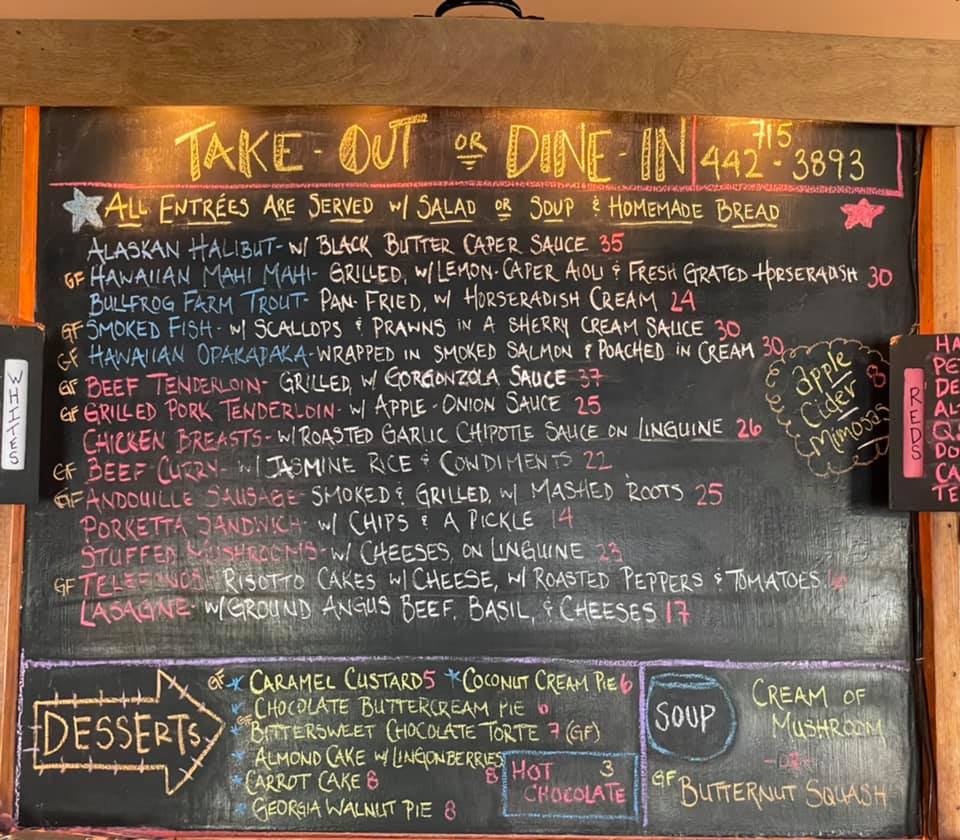 TAKE-OUT OR DINE-IN
715
442-3893
ALL ENTRÉES ARE SERVED W/ SALAD OR SOUP & HOMEMADE BREAD
ALASKAN HALIBUT- W/ BLACK BUTTER CAPER SAUCE 35
GF HAWAIIAN MAHI MAHI- GRILLED, W/ LEMON-CAPER AIOLI & FRESH GRATED HORSERADISH 30
BULLFROG FARM TROUT- PAN-FRIED, W/ HORSERADISH CREAM 24
GF SMOKED FISH- W/ SCALLOPS & PRAWNS IN A SHERRY CREAM SAUCE 30
GF HAWAIIAN OPAKAPAKA- WRAPPED IN SMOKED SALMON & POACHED IN CREAM 30
GF BEEF TENDERLOIN- GRILLED, W/ GORGONZOLA SAUCE 37
GF GRILLED PORK TENDERLOIN- W/ APPLE-ONION SAUCE 25
CHICKEN BREASTS- W/ ROASTED GARLIC CHIPOTLE SAUCE ON LINGUINE 26
GF BEEF CURRY- W/ JASMINE RICE & CONDIMENTS 22
GF ANDOUILLE SAUSAGE- SMOKED & GRILLED, W/ MASHED ROOTS 25
PORKETTA SANDWICH- W/ CHIPS & A PICKLE 14
STUFFED MUSHROOMS- W/ CHEESES, ON LINGUINE 23
GF TELEFONOS- RISOTTO CAKES W/ CHEESE, W/ ROASTED PEPPERS & TOMATOES
LASAGNE- W/ GROUND ANGUS BEEF, BASIL, & CHEESES 17
apple 8
Cider
Mimosas
WHITES
REDS
HA
PE
DE
AL
QU
DO
CA
TE
DESSERTS
GF CARAMEL CUSTARD 5
COCONUT CREAM PIE 6
CHOCOLATE BUTTERCREAM PIE 6
GF BITTERSWEET CHOCOLATE TORTE 7 (GF)
ALMOND CAKE W/ LINGONBERRIES 8
CARROT CAKE 8
GEORGIA WALNUT PIE 8
HOT 3
CHOCOLATE
SOUP
CREAM OF
MUSHROOM
-OR-
GF BUTTERNUT SQUASH